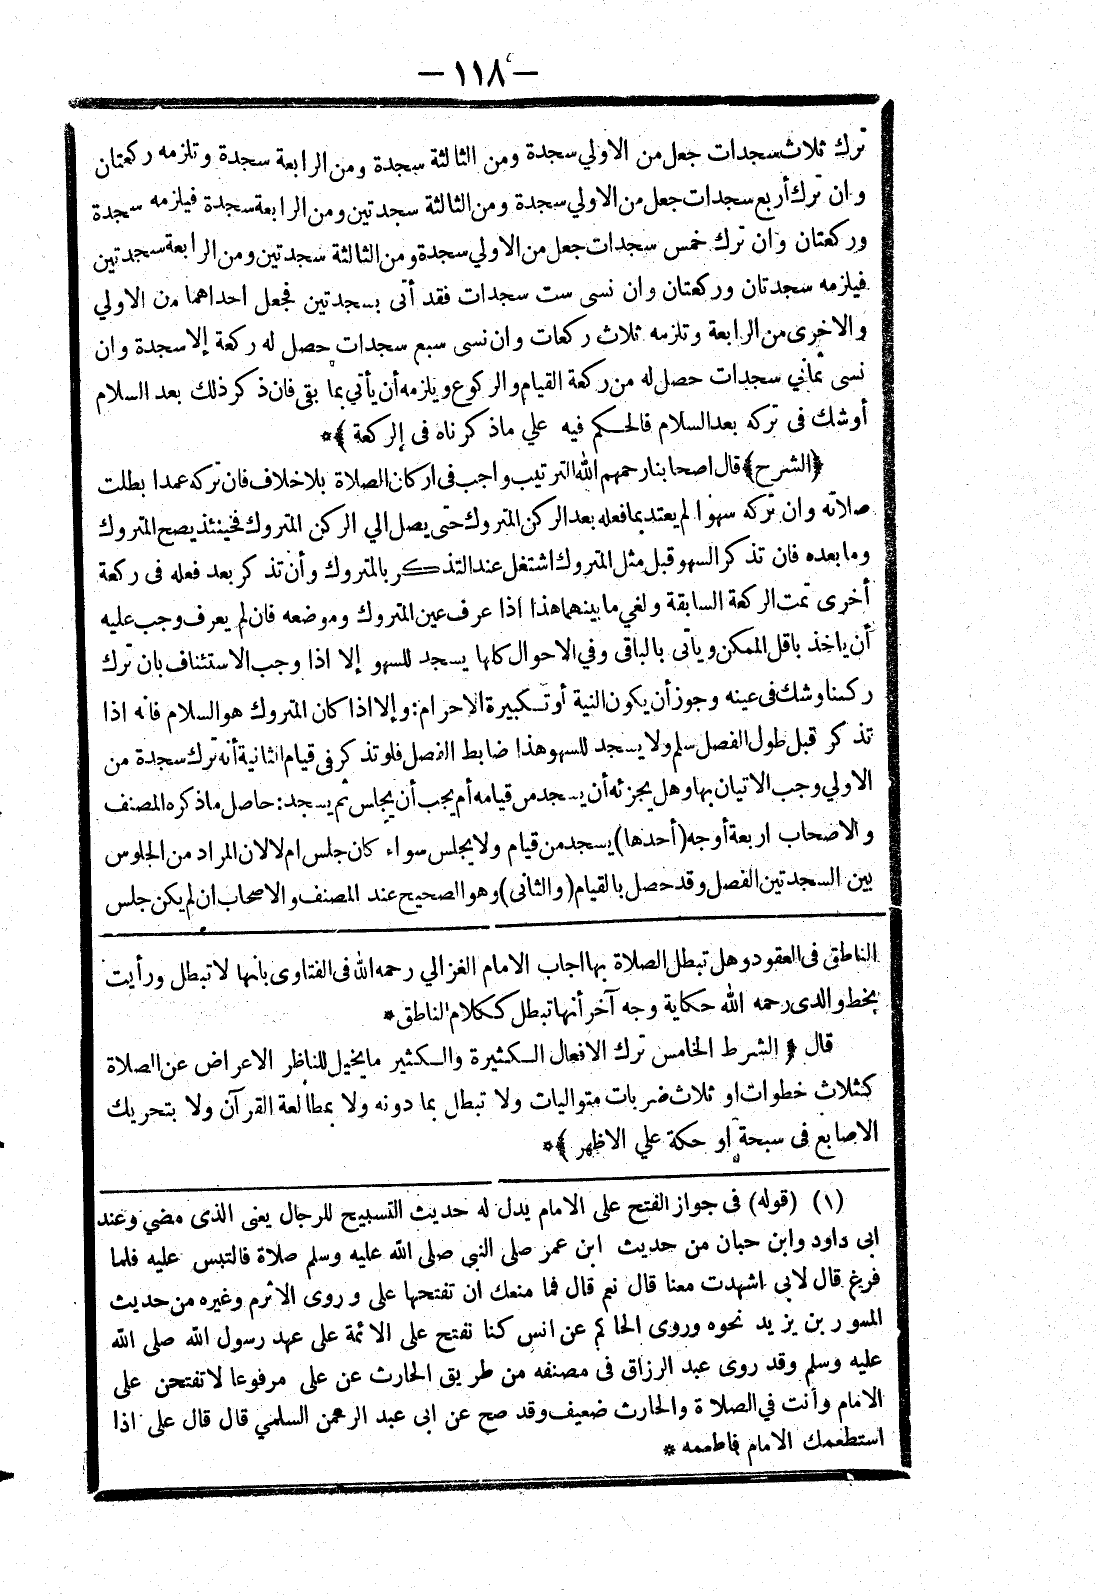 — ١١٨ —
ترك ثلاث سجدات جعل من الاولي سجدة ومن الثالثة سجدة ومن الرابعة سجدة وتلزمه ركعتان
وان ترك أربع سجدات جعل من الاولي سجدة ومن الثالثة سجدتين ومن الرابعة سجدة فيلزمه سجدة
وركعتان وان ترك خمس سجدات جعل من الاولي سجدة ومن الثالثة سجدتين ومن الرابعة سجدتين
فيلزمه سجدتان وركعتان وان نسى ست سجدات فقد أتى بسجدتين فجعل احداهما من الاولي
والاخرى من الرابعة وتلزمه ثلاث ركعات وان نسى سبع سجدات حصل له ركعة إلا سجدة وان
نسى ثماني سجدات حصل له من ركعة القيام والركوع ويلزمه أن يأتي بما بقى فان ذكر ذلك بعد السلام
أو شك فى تركه بعد السلام فالحكم فيه علي ماذكرناه فى الركعة ﴾*
﴿الشرح﴾ قال اصحابنا رحمهم الله الترتيب واجب فى اركان الصلاة بلا خلاف فان تركه عمدا بطلت
صلاته وان تركه سهوا لم يعتد بما فعله بعد الركن المتروك حتى يصل الي الركن المتروك فحينئذ يصح المتروك
وما بعده فان تذكر السهو قبل مثل المتروك اشتغل عند التذكر بالمتروك وأن تذكر بعد فعله فى ركعة
أخرى تمت الركعة السابقة ولغي ما بينهما هذا اذا عرف عين المتروك وموضعه فان لم يعرف وجب عليه
أن ياخذ باقل الممكن وياتى بالباقى وفي الاحوال كلها يسجد للسهو إلا اذا وجب الاستئناف بان ترك
ركنا وشك فى عينه وجوز أن يكون النية أو تكبيرة الاحرام: وإلا اذا كان المتروك هو السلام فانه اذا
تذكر قبل طول الفصل سلم ولا يسجد للسهو هذا ضابط الفصل فلو تذكر فى قيام الثانية أنه ترك سجدة من
الاولي وجب الاتيان بها وهل يجزئه أن يسجد من قيامه أم يجب أن يجلس ثم يسجد: حاصل ماذكره المصنف
والاصحاب اربعة أوجه (أحدها) يسجد من قيام ولا يجلس سواء كان جلس ام لا لان المراد من الجلوس
بين السجدتين الفصل وقد حصل بالقيام (والثانى) وهو الصحيح عند المصنف والاصحاب ان لم يكن جلس
الناطق فى العقود وهل تبطل الصلاة بها اجاب الامام الغزالي رحمه الله فى الفتاوى بانها لا تبطل ورأيت
بخط والدى رحمه الله حكاية وجه آخر أنها تبطل ككلام الناطق*
قال ﴿ الشرط الخامس ترك الافعال الكثيرة والكثير ما يخيل للناظر الاعراض عن الصلاة
كثلاث خطوات او ثلاث ضربات متواليات ولا تبطل بما دونه ولا بمطالعة القرآن ولا بتحريك
الاصابع فى سبحة او حكة علي الاظهر ﴾*
(١) (قوله) فى جواز الفتح على الامام يدل له حديث التسبيح للرجال يعنى الذى مضي وعند
ابى داود وابن حبان من حديث ابن عمر صلى النبي صلى الله عليه وسلم صلاة فالتبس عليه فلما
فرغ قال لابى اشهدت معنا قال نعم قال فما منعك ان تفتحها على وروى الاثرم وغيره من حديث
المسور بن يزيد نحوه وروى الحاكم عن انس كنا نفتح على الائمة على عهد رسول الله صلى الله
عليه وسلم وقد روى عبد الرزاق فى مصنفه من طريق الحارث عن على مرفوعا لا تفتحن على
الامام وأنت في الصلاة والحارث ضعيف وقد صح عن ابى عبد الرحمن السلمي قال قال على اذا
استطعمك الامام فاطعمه *